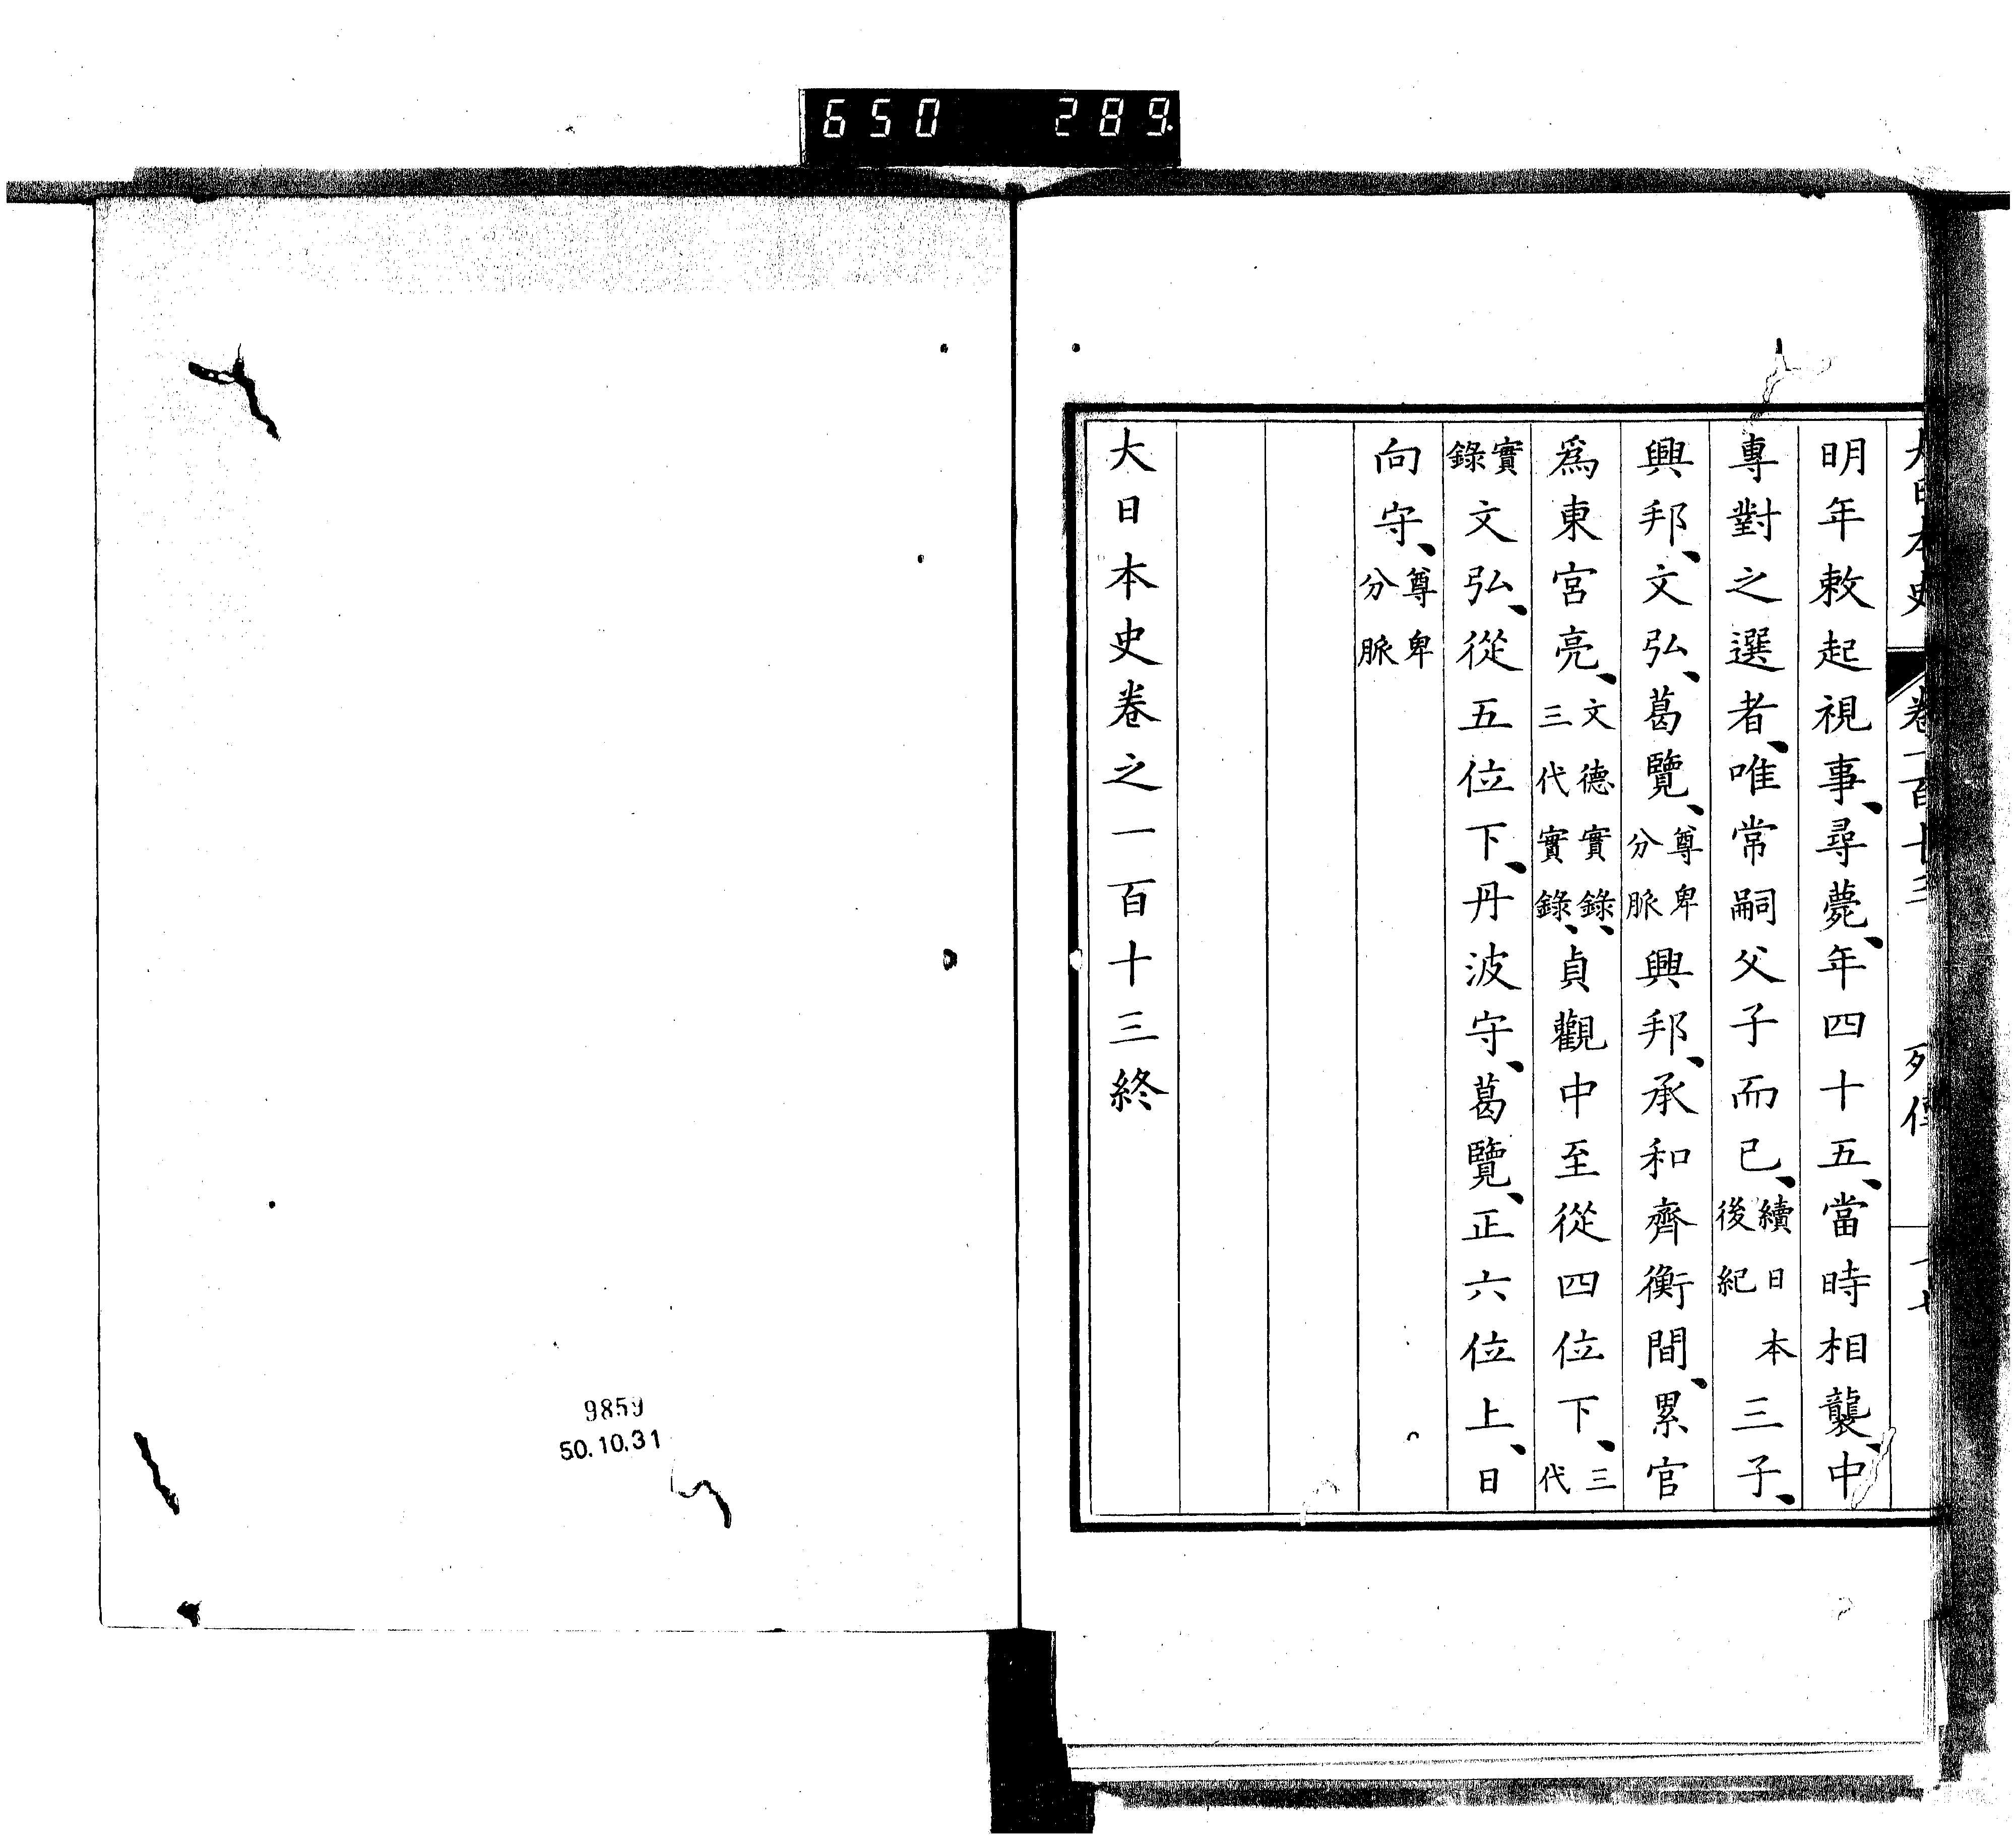 650 289
大日本史 卷一百十三 列傳
明年敕起視事、尋薨、年四十五、當時相襲、中
專對之選者、唯常嗣父子而已、續日本後紀三子、
興邦、文弘、葛覽、尊卑分脈興邦、承和齊衡間、累官
爲東宮亮、文德實錄、三代實錄、貞觀中至從四位下、三代
實錄文弘、從五位下、丹波守、葛覽、正六位上、日
向守、尊卑分脈
大日本史卷之一百十三終
9859
50.10.31